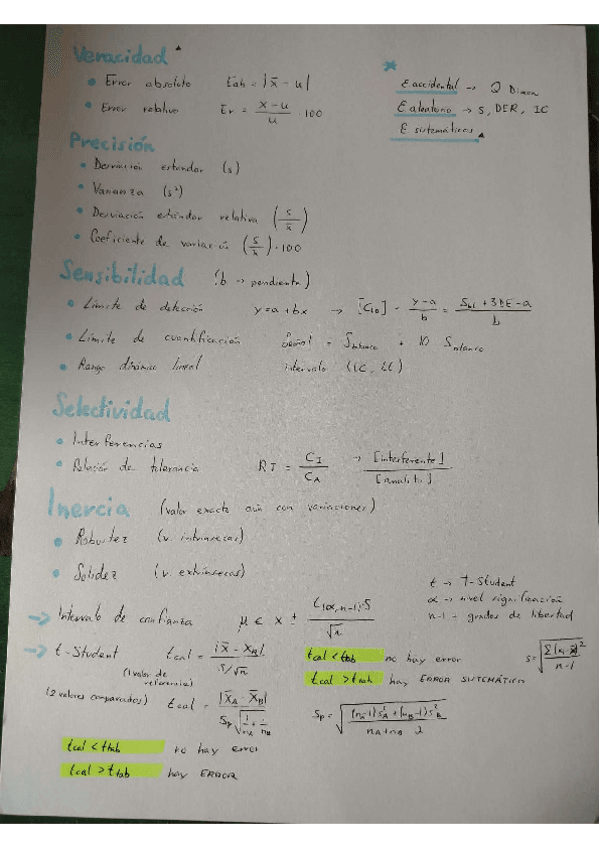 Veracidad
• Error absoluto Eab = |x̄ - u|
• Error relativo Er = (x - u)/u · 100
* E accidental → Q Dixon
E aleatorio → s, DER, IC
E. sistemáticos
Precisión
• Desviación estándar (s)
• Varianza (s²)
• Desviación estándar relativa (s/x̄)
• Coeficiente de variación (s/x̄) · 100
Sensibilidad (b → pendiente)
• Límite de detección y = a + bx → [C LD] - (y-a)/b = (Sbl + 3DE - a)/b
• Límite de cuantificación Señal = Sblanco + 10 Sblanco
• Rango dinámico lineal intervalo (LC, LL)
Selectividad
• Interferencias
• Relación de tolerancia RT = C_I/C_A → [interferente]/[analito]
Inercia (valor exacto aún con variaciones)
• Robustez (v. intrínsecas)
• Solidez (v. extrínsecas)
t → T-Student
α → nivel significación
n-1 - grados de libertad
→ Intervalo de confianza μ ∈ x ± t(α, n-1)·S/√n
→ t-Student t cal = |x̄ - x_R|/(s/√n)
(1 valor de referencia)
tcal < ttab no hay error
tcal > ttab hay ERROR SISTEMÁTICO
s = √(Σ(xi - x̄)²/(n-1))
(2 valores comparados) t cal = |x̄_A - x̄_B|/(Sp √(1/n_A + 1/n_B))
Sp = √(((n_A-1)s²_A + (n_B-1)s²_B)/(n_A + n_B - 2))
tcal < ttab no hay error
tcal > ttab hay ERROR